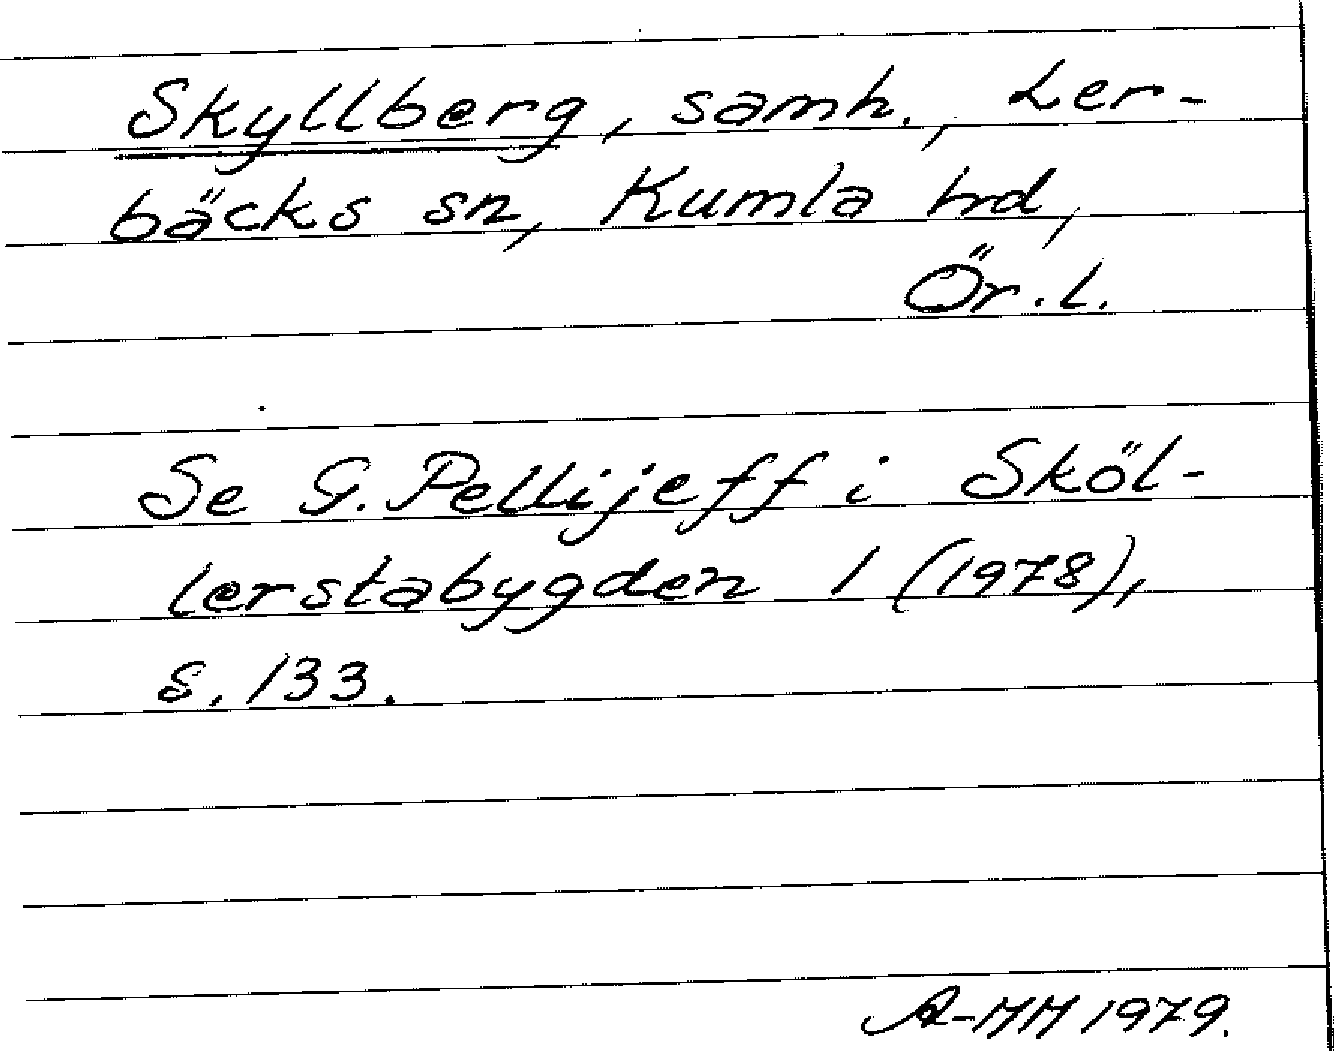 Skyllberg, samh., Ler-
bäcks sn, Kumla hd,
Ör. l.
Se G. Pellijeff i Sköl-
lerstabygden 1 (1978),
s. 133.
A-MM 1979.